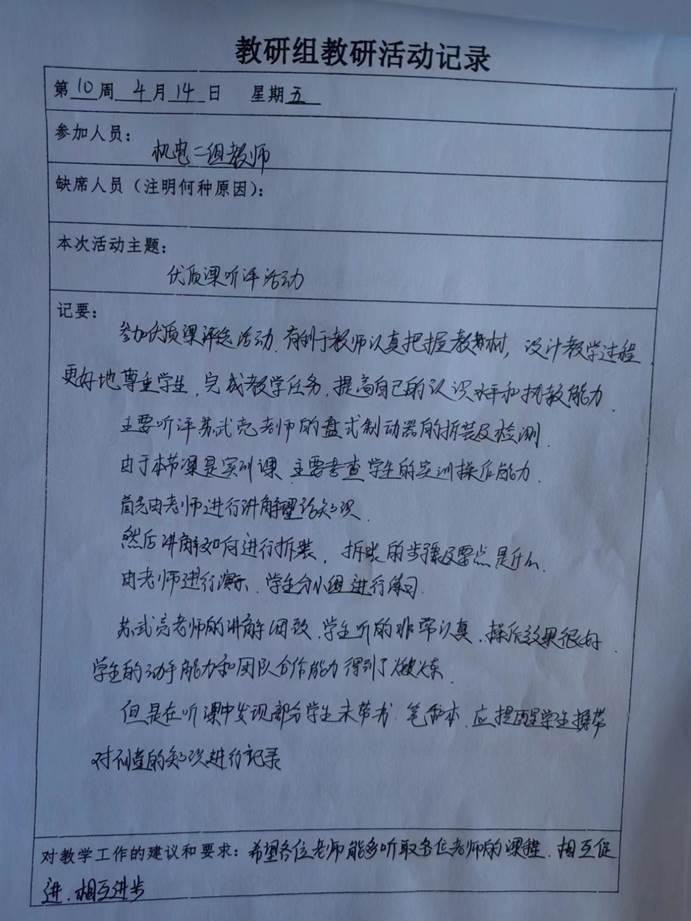 教研组教研活动记录
第10周 4月14日 星期五
参加人员：
机电二组教师
缺席人员（注明何种原因）：
本次活动主题：
优质课听评活动
记要：
参加优质课评选活动，有利于教师认真把握教材，设计教学过程
更好地尊重学生，完成教学任务，提高自己的认识水平和执教能力．
主要听评苏式亮老师的盘式制动器的拆装及检测．
由于本节课是实训课，主要考查学生的实训操作能力．
首先由老师进行讲解理论知识．
然后讲解如何进行拆装，拆装的步骤及要点是什么．
由老师进行演示，学生分小组进行练习．
苏式亮老师的讲解细致，学生听的非常认真，操作效果很好．
学生的动手能力和团队合作能力得到了锻炼．
但是在听课中发现部分学生未带书，笔和本，应提醒学生携带
对所查的知识进行记录
对教学工作的建议和要求：希望各位老师能多听取各位老师的课程，相互促
进，相互进步